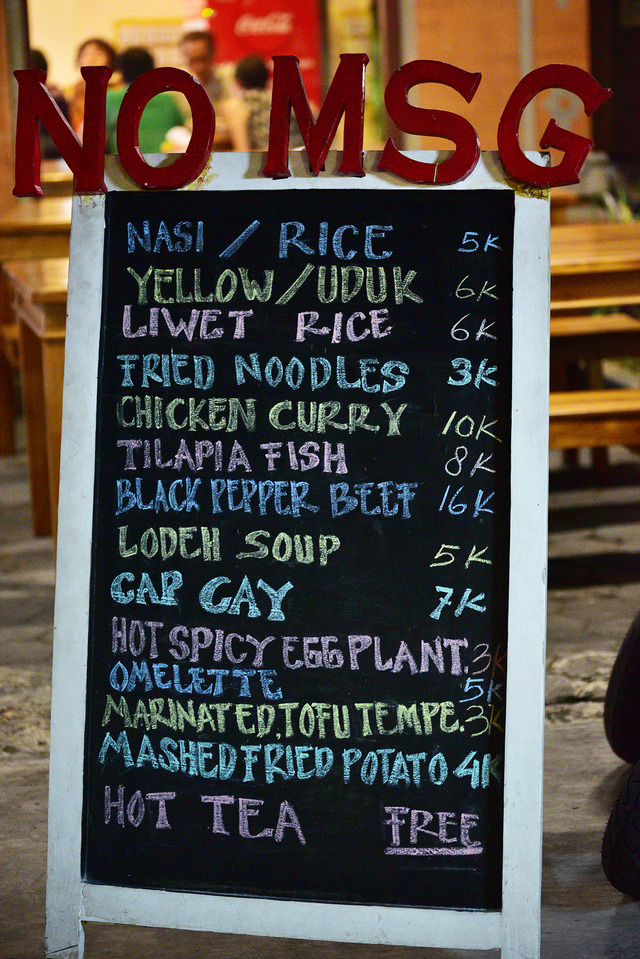 Coca-Cola
NO MSG
NASI / RICE 5K
YELLOW/UDUK 6K
LIWET RICE 6K
FRIED NOODLES 3K
CHICKEN CURRY 10K
TILAPIA FISH 8K
BLACK PEPPER BEEF 16K
LODEH SOUP 5K
CAP CAY 7K
HOT SPICY EGGPLANT. 3K
OMELETTE 5K
MARINATED, TOFU TEMPE. 3K
MASHED FRIED POTATO 4K
HOT TEA FREE